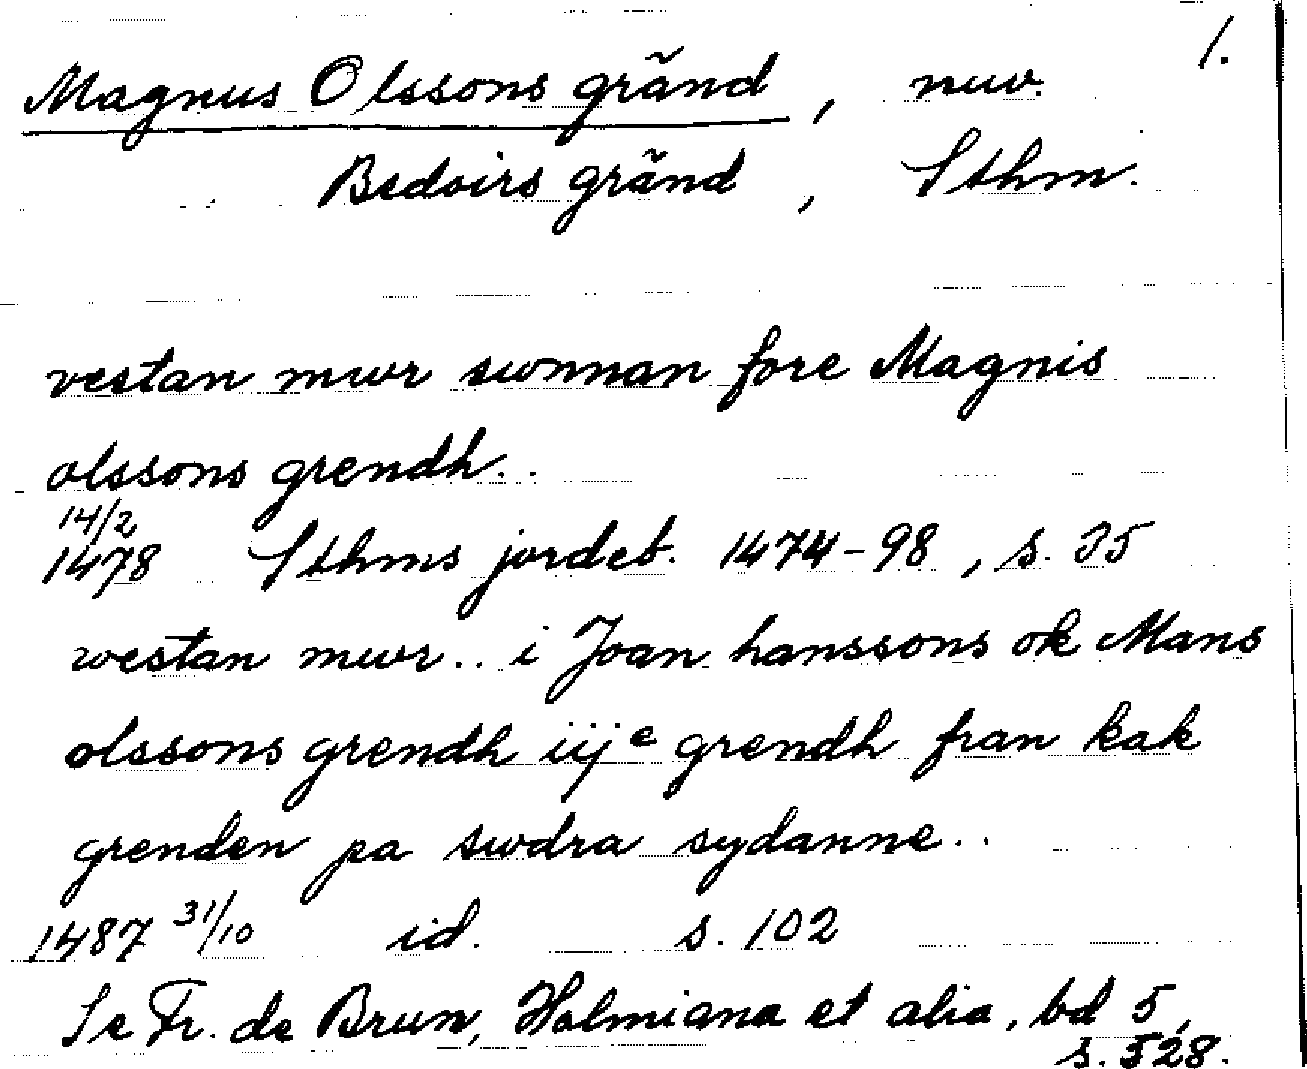 1.
Magnus Olssons gränd, nuv.
Bedoirs gränd, Sthm.
vestan mwr swnnan fore Magnis
olssons grendh..
14/2
1478 Sthms jordeb. 1474-98, s. 35
westan mwr.. i Joan hanssons ok Mans
olssons grendh iije grendh fran kak
grenden pa swdra sydanne..
1487 31/10 id. s. 102
Se Fr. de Brun, Holmiana et alia, bd 5,
s. 528.